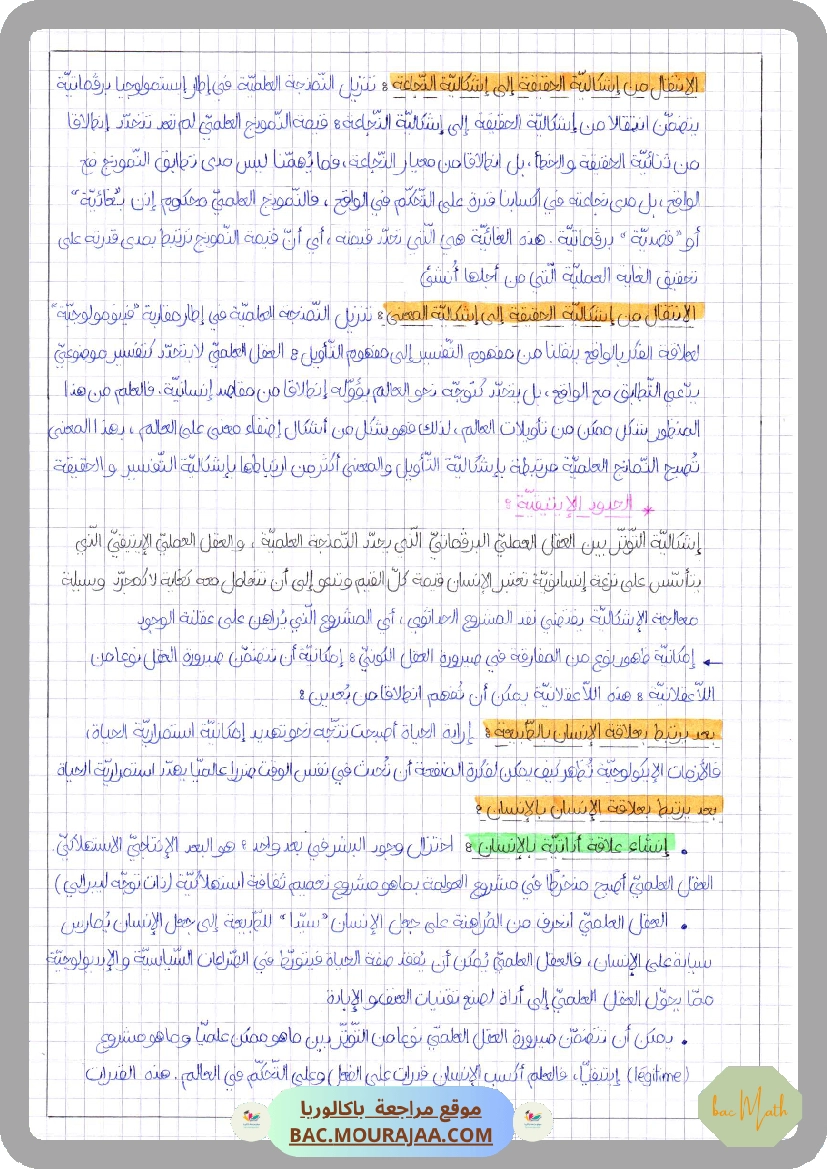 الانتقال من إشكاليّة الحقيقة إلى إشكاليّة النّجاعة : تتنزّل النّمذجة العلميّة في إطار ابستمولوجيا برڨماتيّة
يتضمّن انتقالا من إشكاليّة الحقيقة إلى إشكاليّة النّجاعة : قيمة النّموذج العلميّ لم تعد تتحدّد إنطلاقا
من ثنائيّة الحقيقة والخطأ، بل انطلاقا من معيار النّجاعة، فما يُهمّنا ليس مدى تطابق النّموذج مع
الواقع، بل مدى نجاعته في اكسابنا قدرة على التّحكّم في الواقع، فالنّموذج العلميّ محكوم إذن بـ"غائيّة"
أو "قصديّة" برڨماتيّة. هذه الغائيّة هي الّتي تحدّد قيمته، أي أنّ قيمة النّموذج ترتبط بمدى قدرته على
تحقيق الغاية العمليّة الّتي من أجلها أُنشئ
الانتقال من إشكاليّة الحقيقة إلى إشكاليّة المعنى : تتنزّل النّمذجة العلميّة في إطار مقاربة "فينومولوجيّة"
لعلاقة الفكر بالواقع ينقلنا من مفهوم التّفسير إلى مفهوم التّأويل : العقل العلميّ لا يتحدّد كتفسير موضوعيّ
يدّعي التّطابق مع الواقع، بل يتحدّد كتوجّه نحو العالم يؤوّله إنطلاقا من مقاصد إنسانيّة. فالعلم من هذا
المنظور شكل ممكن من تأويلات العالم، لذلك فهو شكل من أشكال إضفاء معنى على العالم، بهذا المعنى
تُصبح النّماذج العلميّة مرتبطة بإشكاليّة التّأويل والمعنى أكثر من ارتباطها بإشكاليّة التّفسير والحقيقة
* الحدود الإيتيقيّة :
إشكاليّة التّوتّر بين العقل العمليّ البرڨماتيّ الّتي يحدّد النّمذجة العلميّة، والعقل العمليّ الإيتيقيّ الّتي
يتأسّس على نزعة إنسانويّة تعتبر الإنسان قيمة كلّ القيم وتدعو إلى أن نتعامل معه كغاية لا كمجرّد وسيلة
معالجة الإشكاليّة يقتضي نقد المشروع الحداثوي، أي المشروع الّتي يُراهن على عقلنة الوجود
← إمكانيّة ظهور نوع من المفارقة في صيرورة العقل الكونيّ : إمكانيّة أن تتضمّن صيرورة العقل نوعا من
اللاّعقلانيّة : هذه اللاّعقلانيّة يمكن أن تُفهم انطلاقا من بُعدين :
بعد يرتبط بعلاقة الإنسان بالطّبيعة : إرادة الحياة أصبحت تتّجه نحو تهديد إمكانيّة استمراريّة الحياة،
فالأزمات الإيكولوجيّة تُظهر كيف يمكن لفكرة المنفعة أن تُحدث في نفس الوقت ضررا عالميّا يهدّد استمراريّة الحياة
بعد يرتبط بعلاقة الإنسان بالإنسان :
• إنشاء علاقة أداتيّة بالإنسان : اختزال وجود البشر في بعد واحد : هو البعد الإنتاجيّ الاستهلاكيّ.
العقل العلميّ أصبح منخرطا في مشروع العولمة بما هو مشروع تعميم ثقافة استهلاكيّة (ذات توجّه ليبرالي)
• العقل العلميّ انحرف من المُراهنة على جعل الإنسان "سيّدا" للطّبيعة إلى جعل الإنسان يُمارس
سيادة على الإنسان، فالعقل العلميّ يُمكن أن يُفقد صفة الحياة فيتورّط في الصّراعات السّياسيّة والإيديولوجيّة
ممّا يحوّل العقل العلميّ إلى أداة لصنع تقنيات العنف والإبادة
• يمكن أن تتضمّن صيرورة العقل العلميّ نوعا من التّوتّر بين ماهو ممكن علميّا وماهو مشروع
(légitime) إيتيقيّا، فالعلم أكسب الإنسان قدرات على الفعل وعلى التّحكّم في العالم. هذه القدرات
موقع مراجعة باكالوريا
BAC.MOURAJAA.COM
bac Math